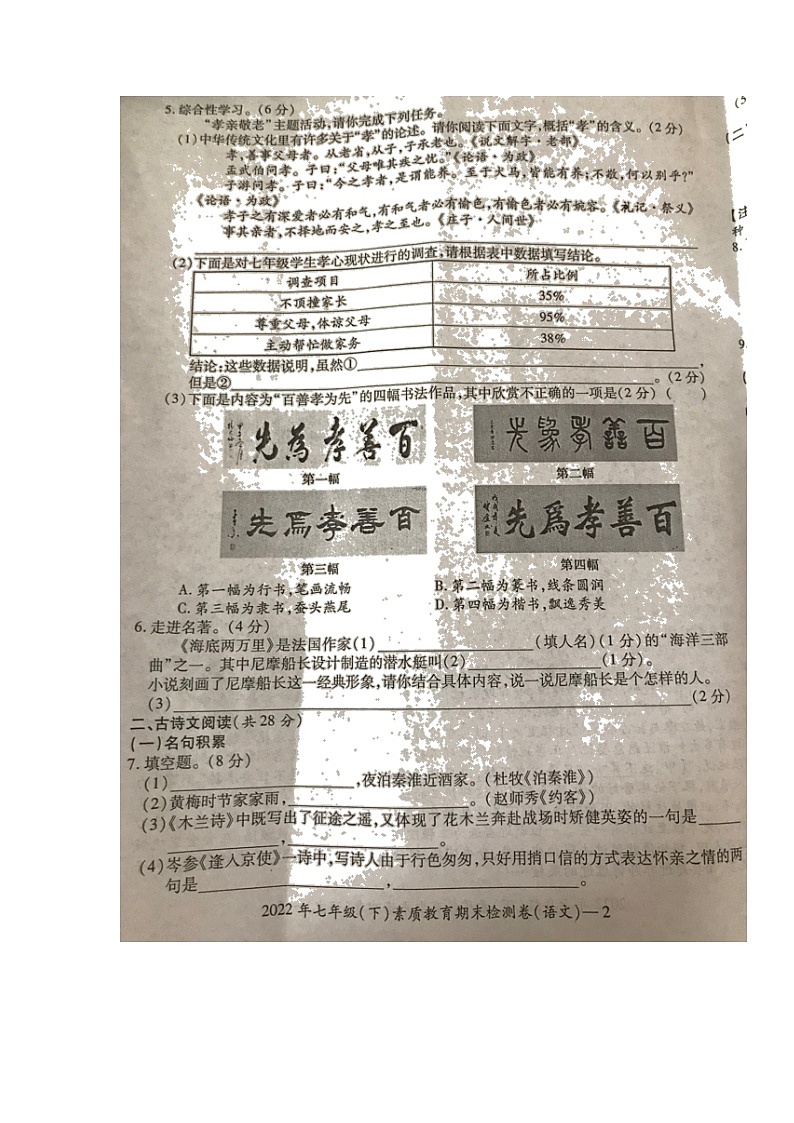 5. 综合性学习。(6 分)
“孝亲敬老”主题活动,请你完成下列任务。
(1)中华传统文化里有许多关于“孝”的论述。请你阅读下面文字,概括“孝”的含义。(2 分)
孝,善事父母者。从老省,从子,子承老也。《说文解字·老部》
孟武伯问孝。子曰:“父母唯其疾之忧。”《论语·为政》
子游问孝。子曰:“今之孝者,是谓能养。至于犬马,皆能有养;不敬,何以别乎?”
《论语·为政》
孝子之有深爱者必有和气,有和气者必有愉色,有愉色者必有婉容。《礼记·祭义》
事其亲者,不择地而安之,孝之至也。《庄子·人间世》
(2)下面是对七年级学生孝心现状进行的调查,请根据表中数据填写结论。
调查项目 所占比例
不顶撞家长 35%
尊重父母,体谅父母 95%
主动帮忙做家务 38%
结论:这些数据说明,虽然①,
但是②。(2 分)
(3)下面是内容为“百善孝为先”的四幅书法作品,其中欣赏不正确的一项是(2 分) ( )
先為孝善百
先為孝善百
第一幅 第二幅
先為孝善百
先為孝善百
第三幅 第四幅
A. 第一幅为行书,笔画流畅 B. 第二幅为篆书,线条圆润
C. 第三幅为隶书,蚕头燕尾 D. 第四幅为楷书,飘逸秀美
6. 走进名著。(4 分)
《海底两万里》是法国作家(1)(填人名)(1 分)的“海洋三部
曲”之一。其中尼摩船长设计制造的潜水艇叫(2)(1 分)。
小说刻画了尼摩船长这一经典形象,请你结合具体内容,说一说尼摩船长是个怎样的人。
(3)(2 分)
二、古诗文阅读(共 28 分)
(一)名句积累
7. 填空题。(8 分)
(1),夜泊秦淮近酒家。(杜牧《泊秦淮》)
(2)黄梅时节家家雨,。(赵师秀《约客》)
(3)《木兰诗》中既写出了征途之遥,又体现了花木兰奔赴战场时矫健英姿的一句是
,。
(4)岑参《逢入京使》一诗中,写诗人由于行色匆匆,只好用捎口信的方式表达怀亲之情的两
句是,。
2022 年七年级(下)素质教育期末检测卷(语文)—2
(二
8.
9.